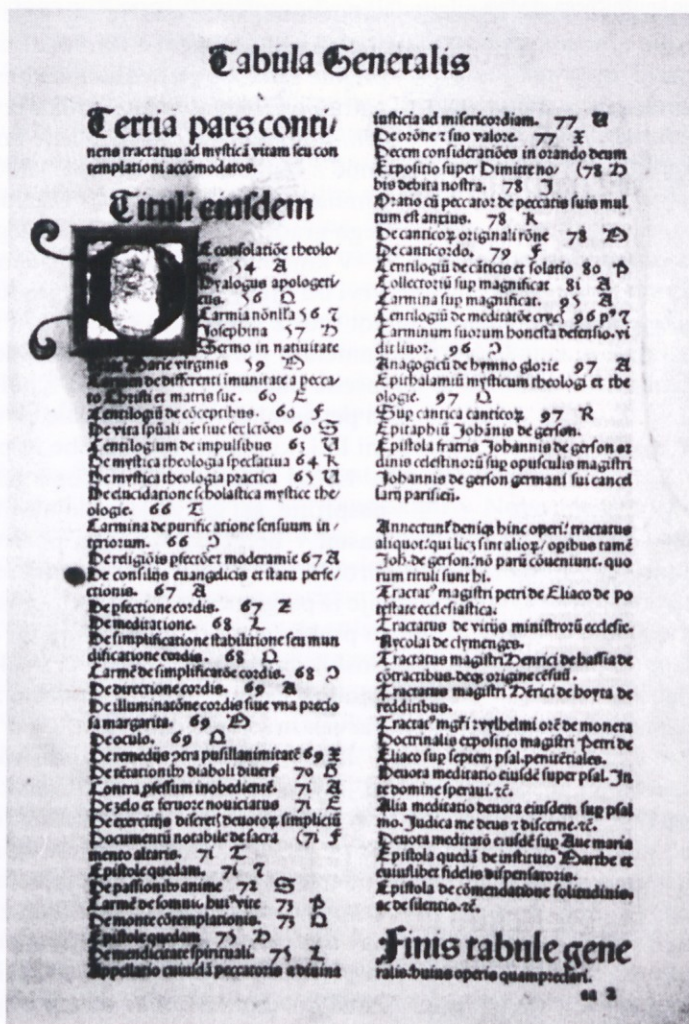 Tabula Generalis
Tertia pars conti/
nens tractatus ad mysticā vitam seu con
templationi accōmodatos.
Tituli eiusdem
De consolatiōe theolo/
gie 54 A
Dyalogus apologeti
cus. 56 Q
Carmia nōnlla 56 T
Josephina 57 D
Sermo in natiuitate
Marie virginis 59
Carmen de differenti imunitate a pecca
to Christi et matris sue. 60 E
Centilogiū de cōceptibus. 60 F
De vita spūali aīe siue sex lctōes 60 S
Centilogium de impulsibus 63 U
De mystica theologia speclatiua 64 K
De mystica theologia practica 65 U
De elucidatione scholastica mystice the/
ologie. 66 T
Carmina de purificatione sensuum in/
teriorum. 66 Ɔ
De religiōis pfectōe et moderamie 67 A
De consilijs euangelicis et statu perfe
ctionis. 67 A
De pfectione cordis. 67 Z
De meditatione. 68 L
De simplificatione stabilitione seu mun
dificatione cordis. 68 Q
Carmē de simplificatōe cordis. 68 Ɔ
De directione cordis. 69 A
De illuminatōne cordis siue vna precio
sa margarita. 69
De oculo. 69 Q
De remedijs ↄtra pusillanimitatē 69 X
De tētationib⁹ diaboli diuers̄ 70
Contra pfessum inobedientē. 71 A
De zelo et feruore nouiciatus 71 E
De exercitijs discret̄ deuotoꝝ simpliciū
Documentū notabile de sacra (71 F
mento altaris. 71 T
Epistole quedam. 71 T
De passionib⁹ anime 72 S
Carmē de somnijs hui⁹ vite 73 P
De monte cōtemplationis. 73 Q
Epistole quedam 75 D
De mendicitate spirituali. 75 L
Appellatio cuiusdā peccatoris a diuina
iusticia ad misericordiam. 77 U
De orōne ⁊ suo valore. 77 X
Decem consideratiōes in orando deum
Expositio super Dimitte no/ (78 D
bis debita nostra. 78 J
Oratio cū peccator de peccatis suis mul
tum est anxius. 78 K
De canticoꝝ originali rōne 78
De canticordo. 79 F
Centilogiū de cāticis et solatio 80 P
Collectoriū sup magnificat 81 A
Carmina sup magnificat. 95 A
Centilogiū de meditatōe crucꝭ 96 p⁹ T
Carminum suorum honesta defensio. vi
dit liuor. 96 Ɔ
Anagogicū de hymno glorie 97 A
Epithalamiū mysticum theologi et the
ologie. 97 Q
Sup cantica canticoꝝ 97 R
Epitaphiū Johānis de gerson.
Epistola fratris Johannis de gerson or
dinis celestinorū sup opusculis magistri
Johannis de gerson germani sui cancel
larij parisieñ.
Annectunt̄ deniqꝫ hinc operi: tractatus
aliquot: qui lic̄ sint alioꝝ/ opibus tamē
Joh. de gerson. nō parū cōueniunt. quo
rum tituli sunt hi.
Tractat⁹ magistri petri de Eliaco de po
testate ecclesiastica.
Tractatus de vitijs ministrorū ecclesie.
Nycolai de clymenges.
Tractatus magistri Henrici de hassia de
cōtractibus. deqꝫ origine cēsuū.
Tractatus magistri Hērici de hoyta de
redditibus.
Tractat⁹ mgr̄i wylhelmi orē de moneta
Doctrinalis expositio magistri Petri de
Eliaco sup septem psal. penitētiales.
Deuota meditatio eiusdē super psal. In
te domine speraui. ⁊c̄.
Alia meditatio deuota eiusdem sup psal
mo. Judica me deus ⁊ discerne. ⁊c̄.
Deuota meditatō eiusdē sup Aue maria
Epistola quedā de instituto Marthe et
cuiuslibet fidelis dispensatoris.
Epistola de cōmendatione solitudinis
ac de silentio. ⁊c̄.
Finis tabule gene
ralis. huius operis quampreclari.